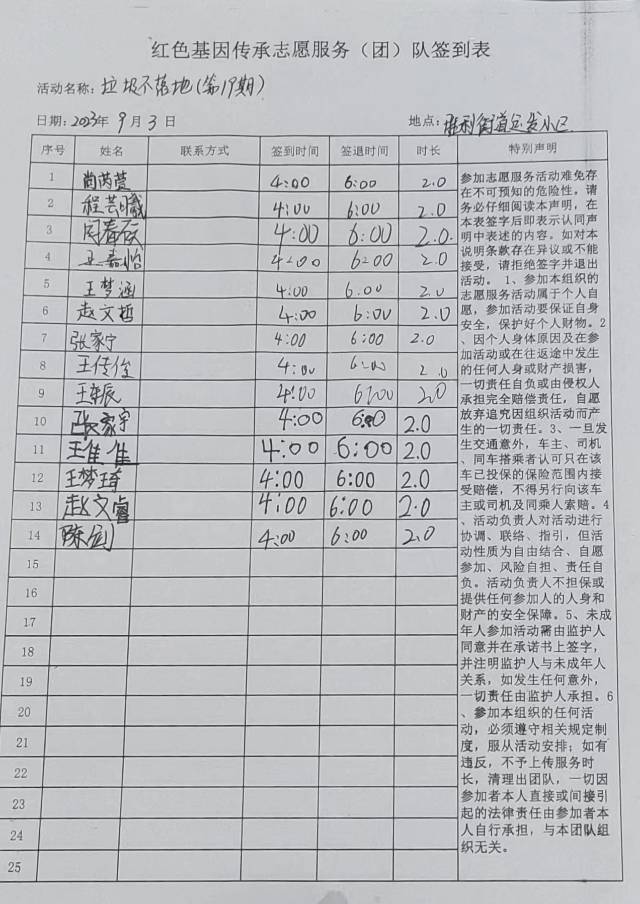 红色基因传承志愿服务（团）队签到表
活动名称：垃圾不落地（第19期）
日期：2023年9月3日 地点：胜利街道运发小区
序号 姓名 联系方式 签到时间 签退时间 时长 特别声明
1 尚芮萱 4:00 6:00 2.0
2 程芸曦 4:00 6:00 2.0
3 4:00 6:00 2.0.
4 王嘉怡 4:00 6:00 2.0
5 王梦涵 4:00 6:00 2.0
6 赵文哲 4:00 6:00 2.0
7 张家宁 4:00 6:00 2.0
8 王传俊 4:00 6:00 2.0
9 4:00 6:00 2.0
10 张家宇 4:00 6:00 2.0
11 王佳佳 4:00 6:00 2.0
12 王梦琦 4:00 6:00 2.0
13 赵文睿 4:00 6:00 2.0
14 陈剑 4:00 6:00 2.0
15
16
17
18
19
20
21
22
23
24
25
参加志愿服务活动难免存
在不可预知的危险性，请
务必仔细阅读本声明，在
本表签字后即表示认同声
明中表述的内容。如对本
说明条款存在异议或不能
接受，请拒绝签字并退出
活动。 1、参加本组织的
志愿服务活动属于个人自
愿，参加活动要保证自身
安全，保护好个人财物。2
、因个人身体原因及在参
加活动或在往返途中发生
的任何人身或财产损害，
一切责任自负或由侵权人
承担完全赔偿责任，自愿
放弃追究因组织活动而产
生的一切责任。3、一旦发
生交通意外，车主、司机
、同车搭乘者认可只在该
车已投保的保险范围内接
受赔偿，不得另行向该车
主或司机及同乘人索赔。4
、活动负责人对活动进行
协调、联络、指引，但活
动性质为自由结合、自愿
参加、风险自担、责任自
负。活动负责人不担保或
提供任何参加人的人身和
财产的安全保障。5、未成
年人参加活动需由监护人
同意并在承诺书上签字，
并注明监护人与未成年人
关系，如发生任何意外，
一切责任由监护人承担。6
、参加本组织的任何活
动，必须遵守相关规定制
度，服从活动安排；如有
违反，不予上传服务时
长，清理出团队，一切因
参加者本人直接或间接引
起的法律责任由参加者本
人自行承担，与本团队组
织无关。